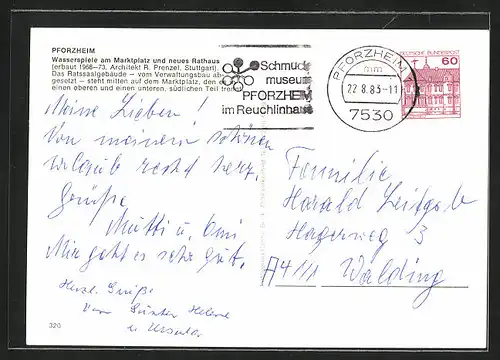 PFORZHEIM
Wasserspiele am Marktplatz und neues Rathaus
(erbaut 1968–73, Architekt R. Prenzel, Stuttgart).
Das Ratssaalgebäude – vom Verwaltungsbau ab-
gesetzt – steht mitten auf dem Marktplatz, den es
einen oberen und einen unteren, südlichen Teil trennt
Schmuck
museum
PFORZHEIM
im Reuchlinhaus
PFORZHEIM
mm
22.8.83-11
7530
DEUTSCHE BUNDESPOST
60
Meine Lieben!
Von meinem schönen
Urlaub recht herz.
Grüße
Mutti u. Omi
Mir geht es sehr gut.
Herzl. Grüße
von Günter Helene
u Ursula
320
Familie
Harald Leitgeb
Hagerweg 3
A4111 Walding